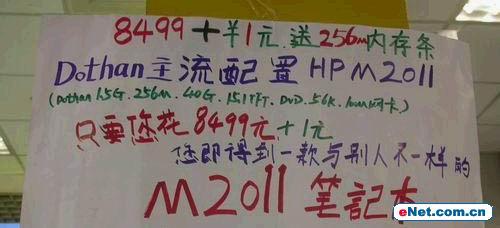 8499+¥1元 送256m内存条
Dothan主流配置HPM2011
(Dothan 1.5G. 256m. 40G. 15.1TFT. DVD. 56K. 网卡.)
只要您花8499元+1元
您即得到一款与别人不一样的
M2011笔記本
eNet.com.cn